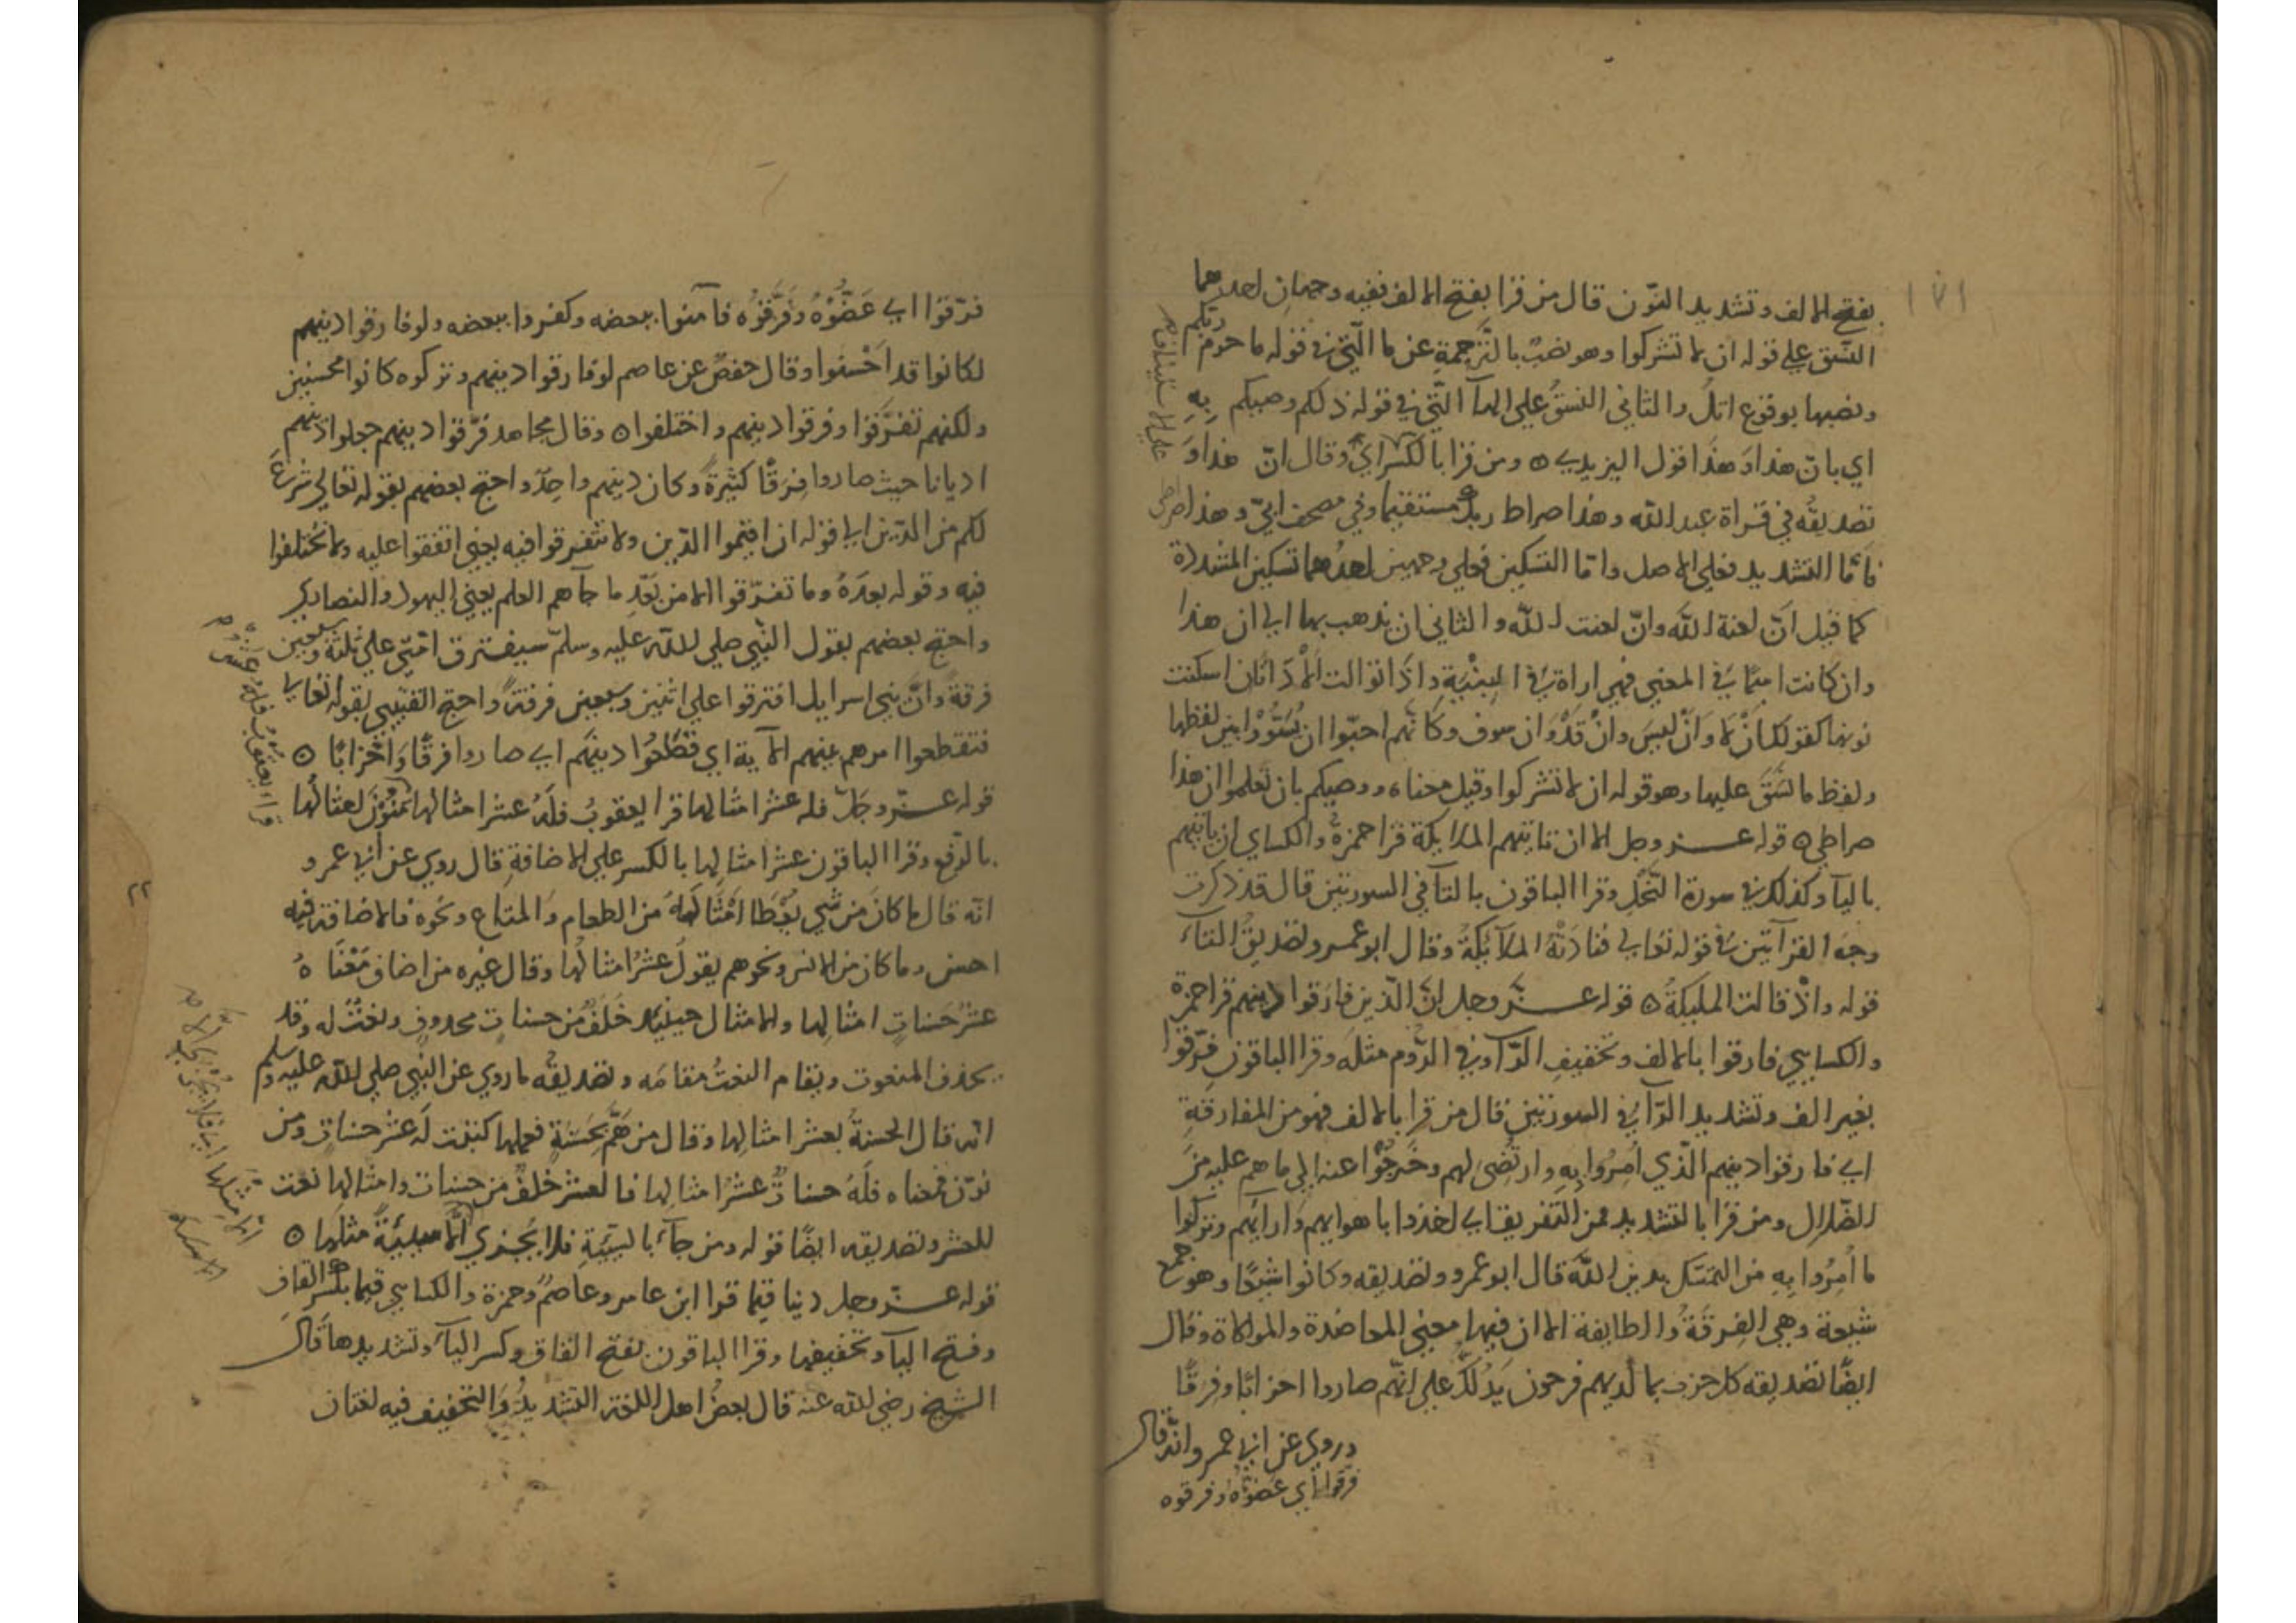 ١٧١
بفتح الالف وتشديد النون قال من قرا بفتح الالف ففيه وجهان احدهما
النسق علي قوله ان لا تشركوا وهو نصب بالترجمة عن ما التي في قوله ما حرم ربكم
ونصبها بوقوع اتل والثاني النسق علي الهآ التي في قوله ذلكم وصيكم به
اي بان هذا وهذا قول اليزيدي ٥ ومن قرا بالكسر اي وقال ان هذا و
تصديقه في قراة عبد الله وهذا صراط ربك مستقيما وفي مصحف ابي وهذا صراط
فاما التشديد فعلي الاصل واما التسكين فعلي وجهين احدهما تسكين المشددة
كما قيل ان لعنة الله وان لعنت الله والثاني ان يذهب بها الي ان هذا
وان كانت اسما في المعني فهي اراة في البنية واذا توالت الاداتان اسكنت
نونها كقولك ان لا وان ليس وان قد وان سوف وكانهم احبوا ان يسووا بين لفظها
ولفظ ما نسق عليها وهو قوله ان لا تشركوا وقيل معناه ووصيكم بان تعلموا ان هذا
صراطي ٥ قوله عز وجل الا ان تاتيهم الملايكة قرا حمزة والكساي ان ياتيهم
باليآ وكذلك في سورة النحل وقرا الباقون بالتآ في السورتين قال قد ذكرت
وجه القرآتين في قوله تعالي فنادته الملآئكة وقال ابو عمرو تصديق التآء
قوله واذ قالت المليكة ٥ قوله عز وجل ان الذين فارقوا دينهم قرا حمزة
والكسايي فارقوا بالالف وتخفيف الرآ وفي الروم مثله وقرا الباقون فرقوا
بغير الف وتشديد الرآ في السورتين قال من قرا بالالف فهو من المفارقة
اي فارقوا دينهم الذي امروا به وارتضي لهم وخرجوا عنه الي ما هم عليه من
الضلال ومن قرا بالتشديد فمن التفريق اي اخذوا باهوايهم وارائهم وتركوا
ما امروا به من التمسك بدين الله قال ابو عمرو وتصديقه وكانوا شيعا وهو جمع
شيعة وهي الفرقة والطايفة الا ان فيها معني المعاضدة والموالاة وقال
ايضا تصديقه كل حزب بما لديهم فرحون يدلك علي انهم صاروا احزابا وفرقا
وروي عن ابي عمرو انه قال
فرقوا اي عضوه وفرقوه
علي الاستيناف
فرقوا اي عضوه وفرقوه فآمنوا ببعضه وكفروا ببعضه ولو فارقوا دينهم
لكانوا قد احسنوا وقال حفص عن عاصم لو فارقوا دينهم وتركوه كانوا محسنين
ولكنهم تفرقوا وفرقوا دينهم واختلفوا ٥ وقال مجاهد فرقوا دينهم جعلوا دينهم
اديانا حيث صاروا فرقا كثيرة وكان دينهم واحدا واحتج بعضهم بقوله تعالي شرع
لكم من الدين الي قوله ان اقيموا الدين ولا تتفرقوا فيه يعني اتفقوا عليه ولا تختلفوا
فيه وقوله بعده وما تفرقوا الا من بعد ما جآهم العلم يعني اليهود والنصاري
واحتج بعضهم بقول النبي صلي الله عليه وسلم سيفترق امتي علي ثلثة وسبعين
فرقة وان بني اسرايل افترقوا علي اثنين وسبعين فرقة واحتج القتيبي بقوله تعالي
فتقطعوا امرهم بينهم الآية اي قطعوا دينهم اي صاروا فرقا واحزابا ٥
قوله عز وجل فله عشر امثالها قرا يعقوب فله عشر امثالها منون لعشر امثالها
بالرفع وقرا الباقون عشر امثالها بالكسر علي الاضافة قال روي عن ابي عمرو
انه قال ما كان من شي يعطا امثاله من الطعام والمتاع ونحوه فالاضافة فيه
احسن وما كان من الانس ونحوهم يقول عشر امثالها وقال غيره من اضاف معناه
عشر حسنات امثالها والامثال حينيذ خلف من حسنات محذوف ونعت له وقد
يحذف المنعوت ويقام النعت مقامه وتصديقه ما روي عن النبي صلي الله عليه وسلم
انه قال الحسنة بعشر امثالها وقال من هم بحسنة فعملها كتبت له عشر حسنات ومن
نون فمعناه فله حسنات عشر امثالها فالعشر خلف من حسنات وامثالها نعت
للعشر وتصديقه ايضا قوله ومن جآء بالسيئة فلا يجزي الا سيئة مثلها ٥
قوله عز وجل دينا قيما قرا ابن عامر وعاصم وحمزة والكسايي قيما بكسر القاف
وفتح اليآ وتخفيفها وقرا الباقون بفتح القاف وكسر اليآء وتشديدها قال
الشيخ رضي الله عنه قال بعض اهل اللغة التشديد والتخفيف فيه لغتان
قراءة يعقوب فله عشر
٢٢